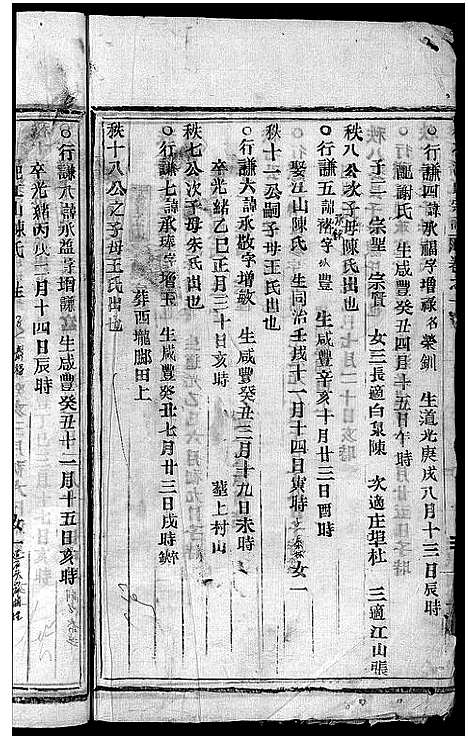 行謙四諱承福字增祿名榮釧 生道光庚戌八月十三日辰時
配謝氏 生咸豐癸丑四月十五日午時
子二 宗聖 宗賢 女三長適白泉陳 次適庄埕杜 三適江山張
秩八公次子母陳氏出也
行謙五諱 字 豐 生咸豐辛亥十月廿三日酉時
娶江山陳氏 生同治壬戌十一月十四日寅時 女一
秩十一公嗣子母王氏出也
行謙六諱承敬字增敬 生咸豐癸丑三月十九日未時
卒光緒乙巳正月三十日亥時 葬上村山
秩七公次子母朱氏出也
行謙七諱承琫字增玉 生咸豐癸丑七月廿三日戌時
葬西壠脚田上
秩十八公之子母王氏出也
行謙八諱承益字增謙 生咸豐癸丑十二月十五日亥時
卒光緒丙 二月十四日辰時
山陳氏 生